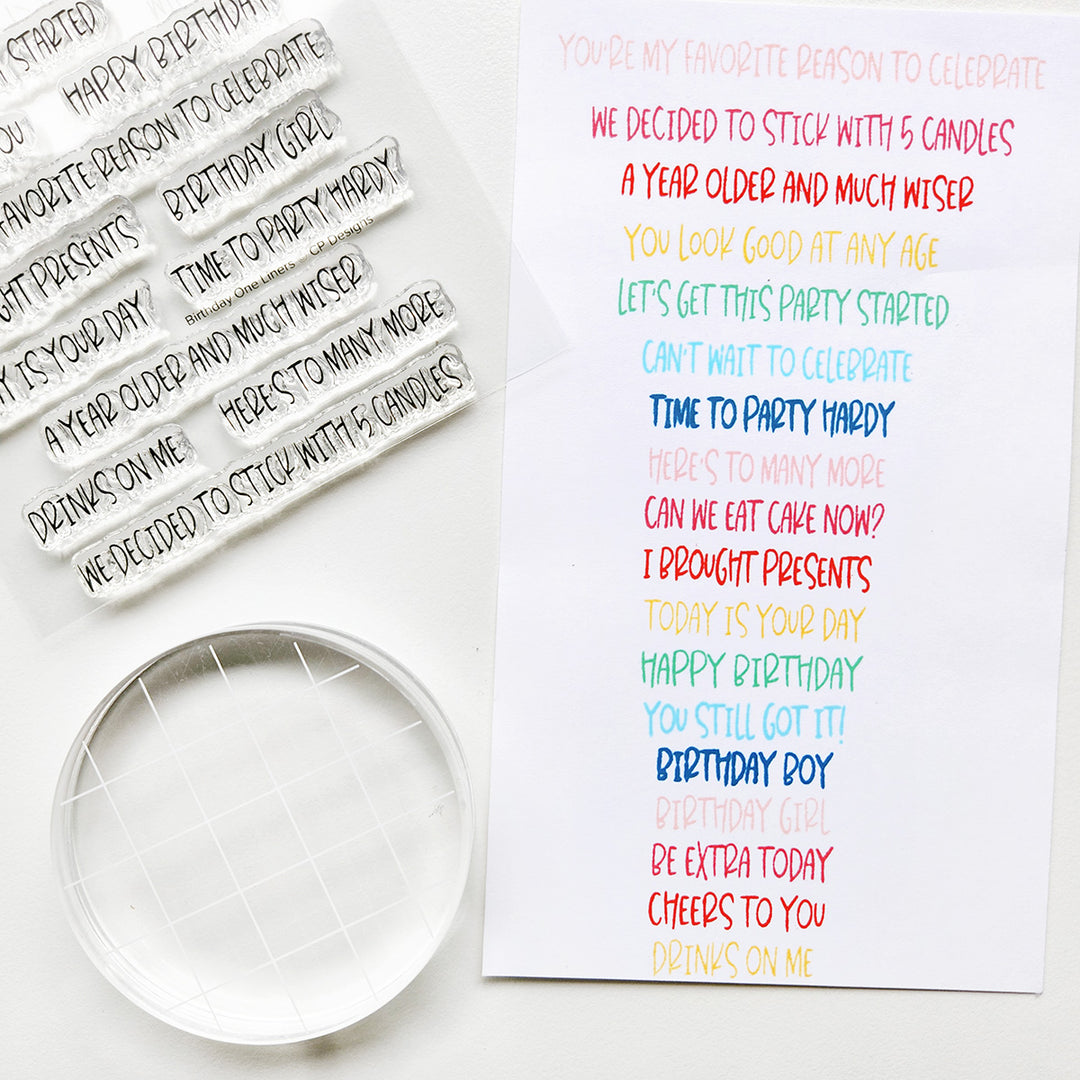 STARTED
HAPPY BIRTHDAY
FAVORITE REASON TO CELEBRATE
BIRTHDAY GIRL
TIME TO PARTY HARDY
PRESENTS
Birthday One Liners © CP Designs
IS YOUR DAY
A YEAR OLDER AND MUCH WISER
HERE'S TO MANY MORE
DRINKS ON ME
WE DECIDED TO STICK WITH 5 CANDLES
YOU'RE MY FAVORITE REASON TO CELEBRATE
WE DECIDED TO STICK WITH 5 CANDLES
A YEAR OLDER AND MUCH WISER
YOU LOOK GOOD AT ANY AGE
LET'S GET THIS PARTY STARTED
CAN'T WAIT TO CELEBRATE
TIME TO PARTY HARDY
HERE'S TO MANY MORE
CAN WE EAT CAKE NOW?
I BROUGHT PRESENTS
TODAY IS YOUR DAY
HAPPY BIRTHDAY
YOU STILL GOT IT!
BIRTHDAY BOY
BIRTHDAY GIRL
BE EXTRA TODAY
CHEERS TO YOU
DRINKS ON ME